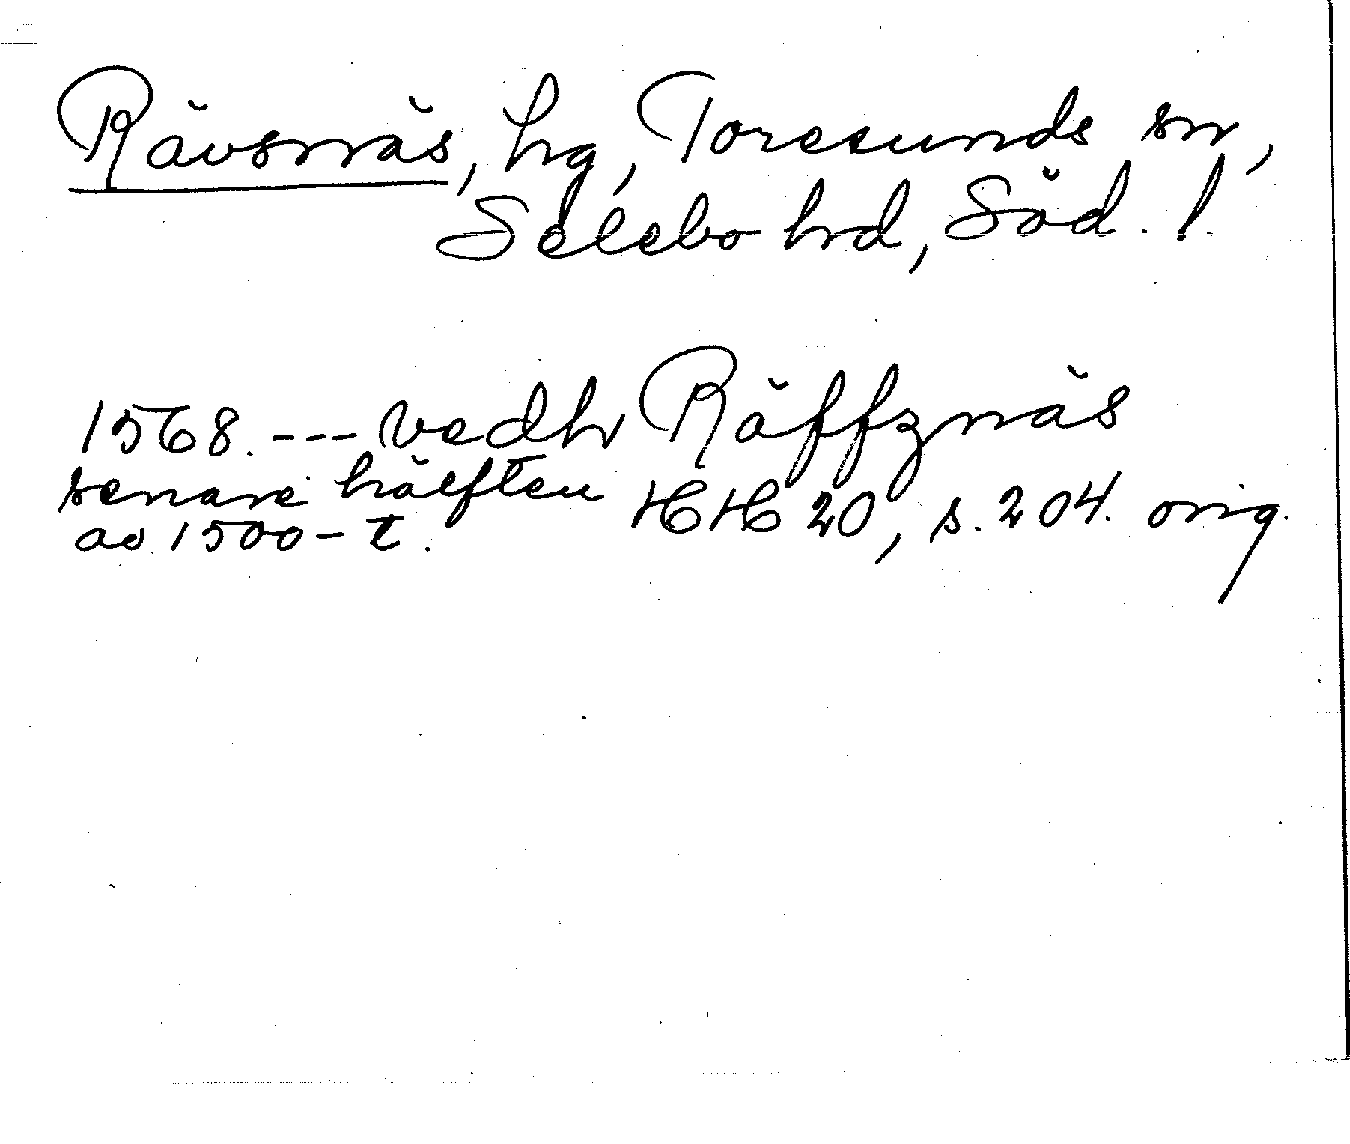 Rävsnäs, hg, Toresunds sn,
Selebo hd, Söd. l.
1568. --- vedh Räffznäs
senare hälften HH 20, s. 204. orig.
av 1500-t.